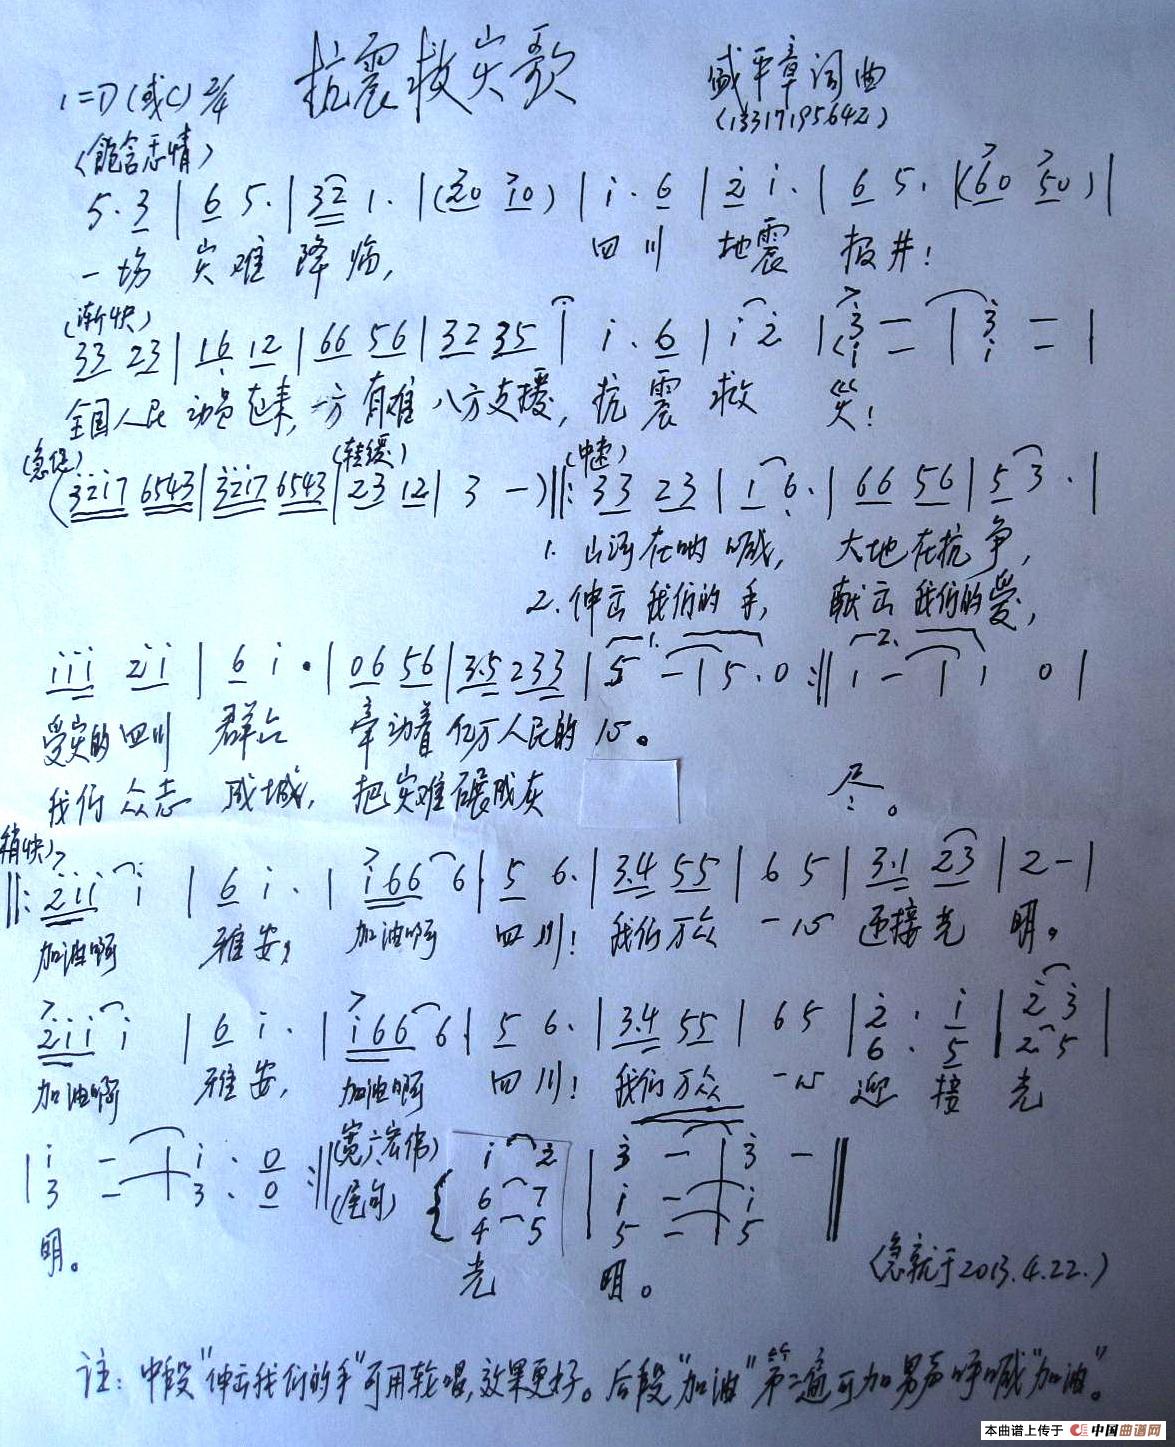 抗震救灾歌
1=D(或C) 2/4
盛平章词曲
(13317195642)
(饱含悲情)
5. 3 | 6 5. | 32 1. | (20 10) | i. 6 | 2 i. | 6 5. | (60 50) |
一场 灾难 降临, 四川 地震 报井!
(渐快)
33 23 | 16 12 | 66 56 | 32 35 | i. 6 | i 2 | 3 — | 3 — |
全国人民 动员起来, 一方有难 八方支援, 抗震救 灾!
(急促) (转缓) (中速)
(3217 6543 | 3217 6543 | 23 12 | 3 —) ‖: 33 23 | 1 6. | 66 56 | 5 3. |
1. 山河在呐喊, 大地在抗争,
2. 伸出我们的手, 献出我们的爱,
iii 2ii | 6 i. | 06 56 | 3.5 233 | 5 — | 5. 0 :‖ i — | i 0 |
受灾的四川 群众 牵动着亿万人民的 心。
我们众志 成城, 把灾难碾成灰 尽。
(稍快)
‖: 2ii i | 6 i. | i66 6 | 5 6. | 3.4 55 | 6 5 | 3.1 23 | 2 — |
加油啊 雅安, 加油啊 四川! 我们万众 一心 迎接光 明。
2ii i | 6 i. | i66 6 | 5 6. | 3.4 55 | 6 5 | 2. i | 2 3 |
6. 5 2 5
加油啊 雅安, 加油啊 四川! 我们万众 一心 迎 接 光
| i — | i. 0 :‖ (宽广宏伟) i 2 | 3 — | 3 — ‖
3 — 3. 0 (尾句) 6 7 i — i
4 5 5 — 5
明。 光 明。
(急就于2013.4.22.)
注: 中段"伸出我们的手"可用轮唱,效果更好。后段"加油"第二遍可加男声呼喊"加油"。
本曲谱上传于 中国曲谱网